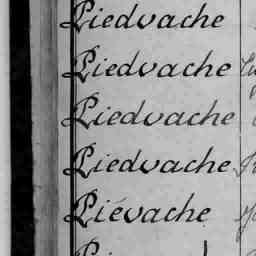 Piedvache
Piedvache
Piedvache
Piedvache
Piévache